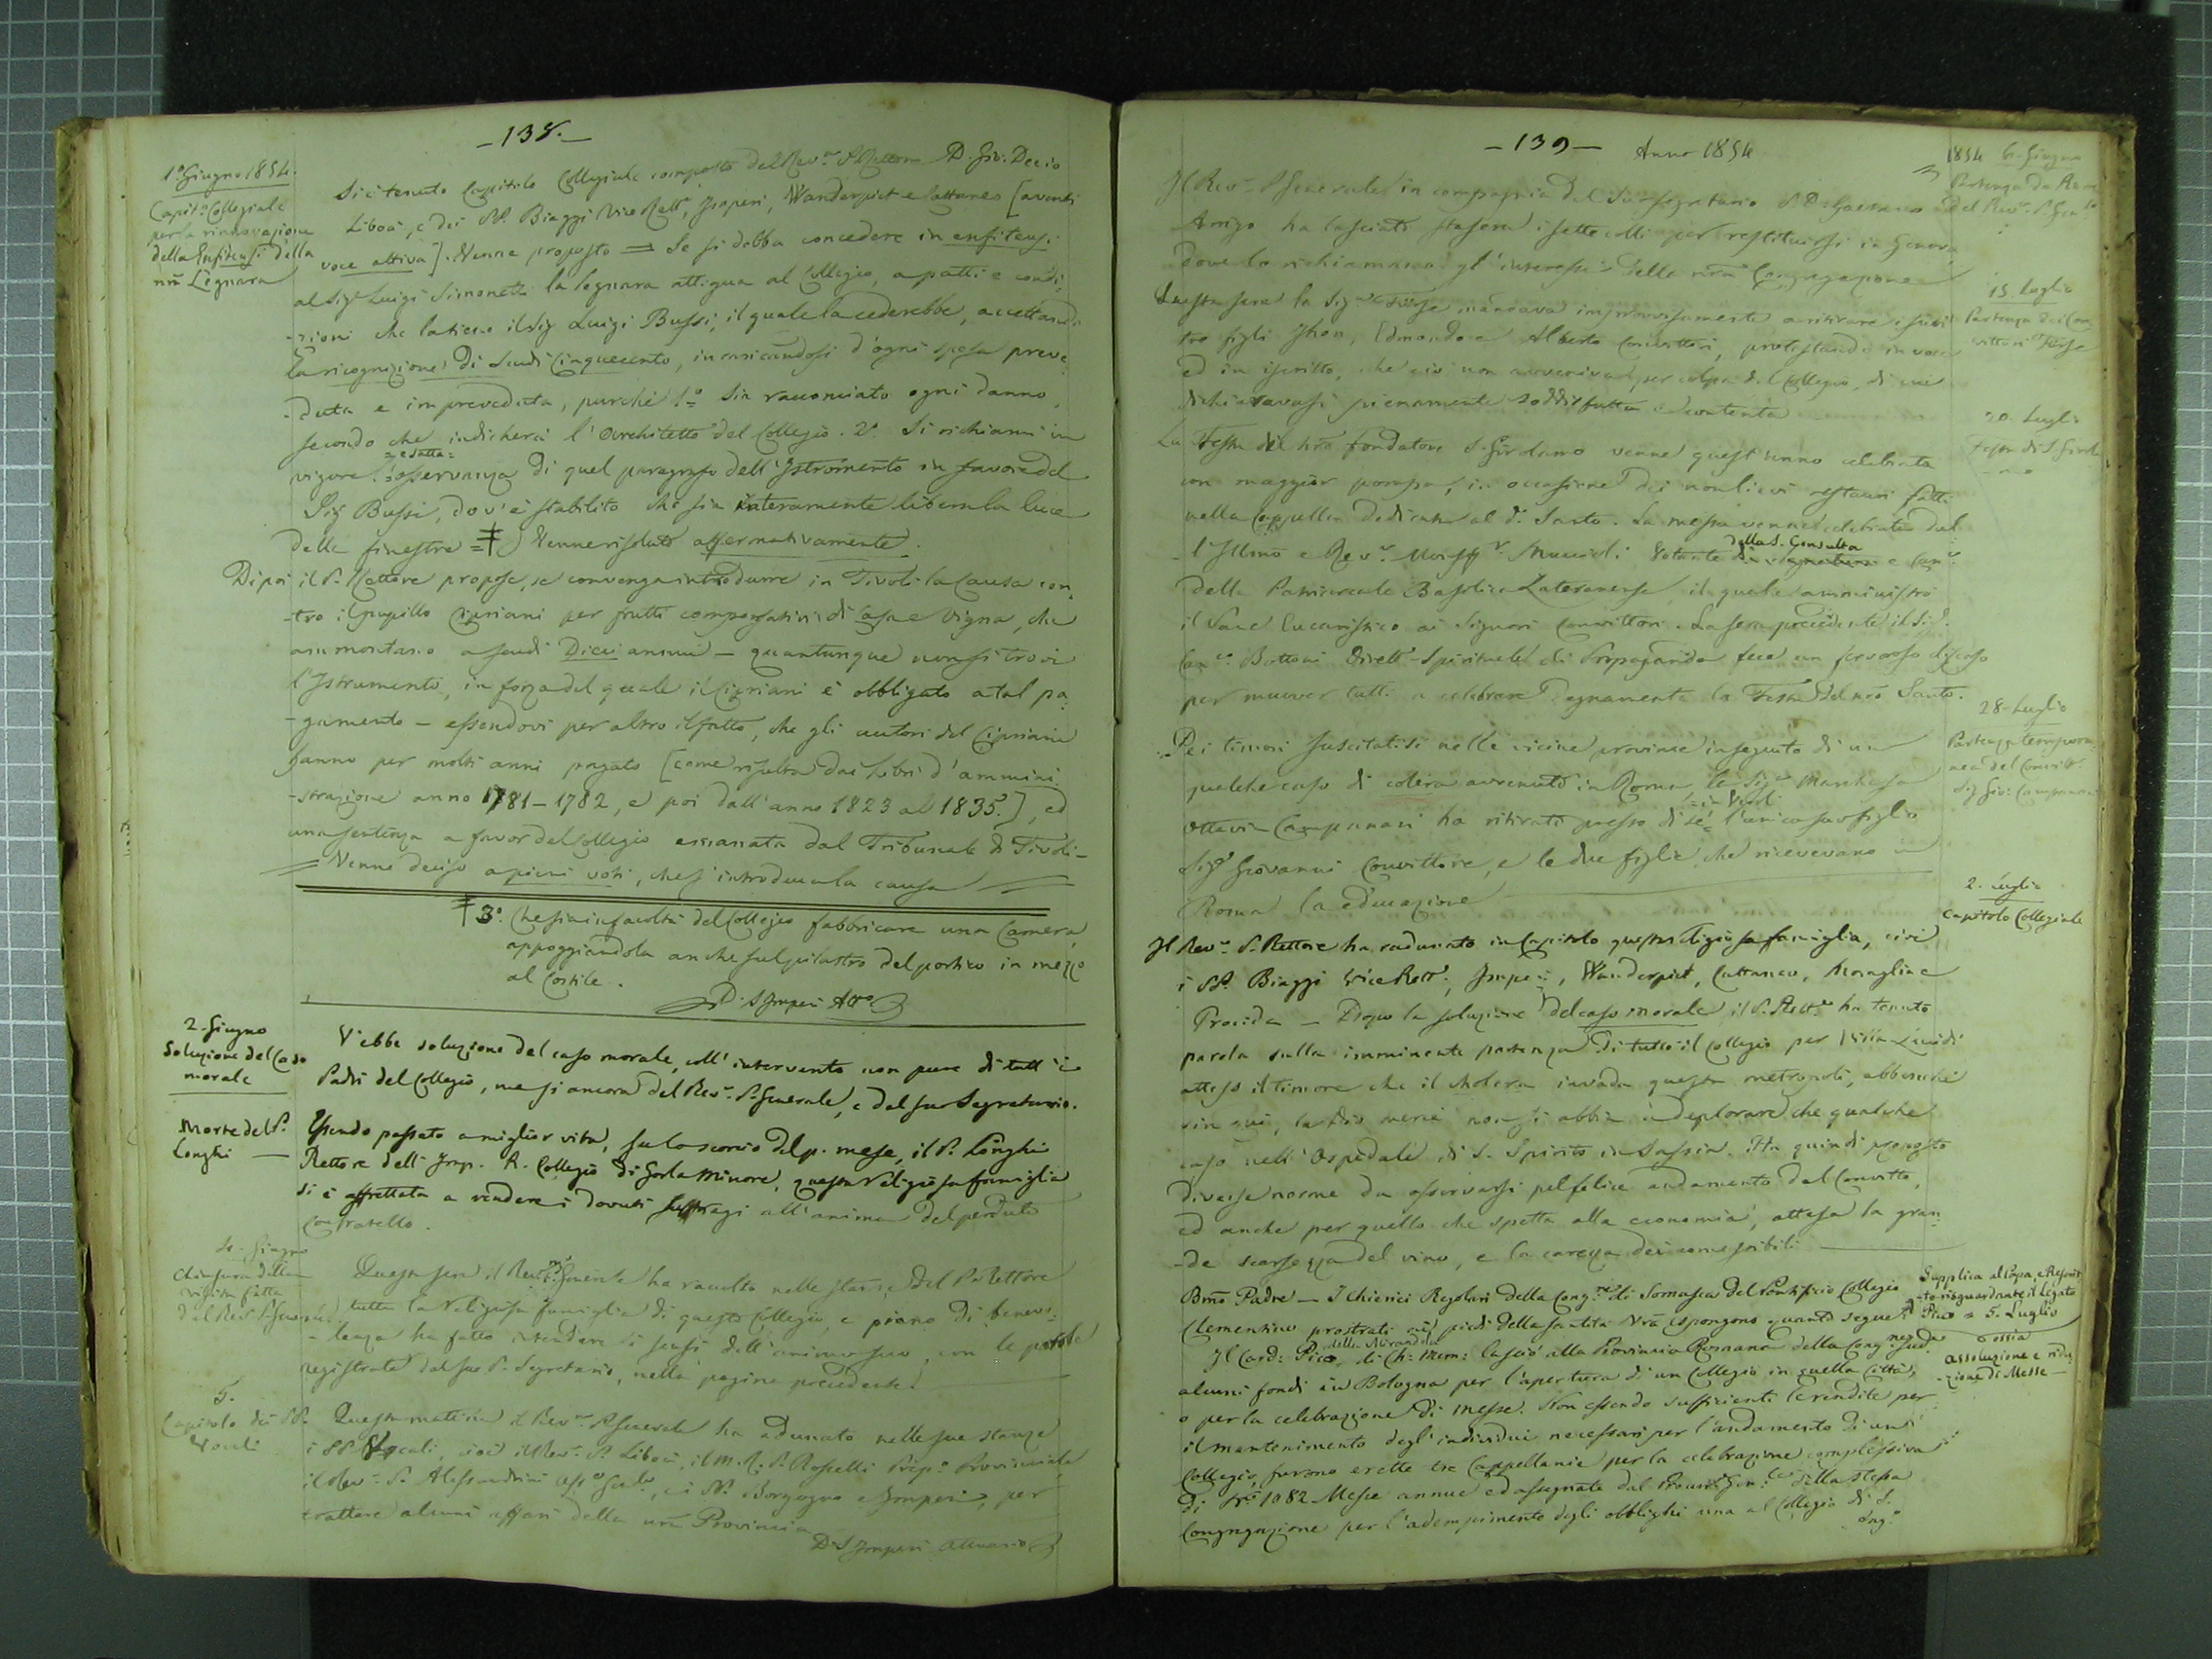 -138.-
1° Giugno 1854.
Capit.° Collegiale
per la rinnovazione
della Enfiteusi della
nrã Legnara
Si è tenuto Capitolo Collegiale composto del Rev.mo P. Rettore D. Gio: Decio
Libois, e dei PP. Biaggi Vice Rett.e, Imperi, Wanderpiet e Cattaneo [aventi
voce attiva]. Venne proposto = Se si debba concedere in enfiteusi
al Sig.r Luigi Simonetti la legnara attigua al Collegio, a patti e condi-
-zioni che la tiene il Sig Luigi Bussi, il quale la cederebbe, accettando
la ricognizione di Scudi Cinquecento, incaricandosi d'ogni spesa preve-
-duta e impreveduta, purchè 1.° Sia racconciato ogni danno,
secondo che indicherà l'Architetto del Collegio. 2.° Si richiami in
= esatta =
vigore l'osservanza di quel paragrafo dell'Istromento in favore del
Sig Bussi, dov'è stabilito che sia interamente libera la luce
delle finestre = ‡ Venne risoluto affermativamente.
Di poi il P. Rettore propose, se convenga introdurre in Tivoli la Causa con-
-tro il pupillo Cipriani per frutti compensativi di Casa e Vigna, che
ammontano a scudi Dieci annui - quantunque non si trovi
l'Istrumento, in forza del quale il Cipriani è obbligato a tal pa-
-gamento - essendovi per altro il fatto, che gli autori del Cipriani
hanno per molti anni pagato [come risulta dai Libri d'ammini-
-strazione anno 1781-1782, e poi dall'anno 1823 al 1835.], ed
una sentenza a favor del Collegio emanata dal Tribunale di Tivoli -
Venne deciso a pieni voti, che s'introduca la causa
‡ 3.° Che sia in facoltà del Collegio fabbricare una Camera,
appoggiandola anche sul pilastro del portico in mezzo
al Cortile.
D. S. Imperi Att.o
2. Giugno
Soluzione del Caso
morale
V'ebbe soluzione del caso morale, coll'intervento non pure di tutt'i
Padri del Collegio, ma sì ancora del Rev.mo P. Generale, e del suo Segretario.
Morte del P.
Longhi
Essendo passato a miglior vita, sullo scorcio del p. mese, il P. Longhi
Rettore dell'Imp. R. Collegio di Gorla Minore, questa religiosa famiglia
si è affrettata a rendere i dovuti suffragi all'anima del perduto
confratello.
4. Giugno
Chiusura della
visita fatta
dal Rev P. Generale
Questa sera il Rev.mo P. Generale ha raccolto nelle stanze del P. Rettore
tutta la religiosa famiglia di questo Collegio, e pieno di benevo-
-lenza ha fatto intendere i sensi dell'animo suo, con le parole
registrate dal suo P. Segretario, nella pagina precedente.
5.
Capitolo dei PP.
Vocali
Questa mattina il Rev.mo P. Generale ha adunato nelle sue stanze
i PP. Vocali, cioè il Rev.mo P. Libois, il M. R. P. Rosselli Prep.o Provinciale
il Rev.mo P. Alessandrini Ass.e Gen.le, i PP. Borgogno e Imperi, per
trattare alcuni affari della nrã Provincia
D. S. Imperi Attuario
-139- Anno 1854
1854 6. Giugno
Partenza da Roma
del Rev.mo P. Gen.le
Il Rev.mo P. Generale in compagnia del suo segretario P. D. Gaetano
Arrigo ha lasciato stasera i sette colli per restituirsi in Genova
dove lo richiamano gl'interessi della nrã Congregazione
15. Luglio
Partenza dei Con-
vittori
Questa sera la Sig.ra mandava improvvisamente a ritirare i suoi
tre figli Jhon, Edmondo e Alberto Convittori, protestando in voce
ed in iscritto, che ciò non avveniva per colpa del Collegio, di cui
dichiaravasi pienamente soddisfatta e contenta
20. Luglio
Festa di S. Girola-
-mo
La Festa del nrõ fondatore S. Girolamo venne quest'anno celebrata
con maggior pompa, in occasione dei restauri fatti
nella Cappella dedicata al d.° Santo. La messa venne celebrata dal-
della S. Consulta
-l'Illmo e Rev.mo Monsig.r Muccioli Votante di segnatura e Can.co
della Patriarcale Basilica Lateranense, il quale amministrò
il Pane Eucaristico ai Signori Convittori. La sera precedente il Sig.
Can.co Bottoni Dirett. Spirituale di Propaganda fece un fervoroso discorso
per muover tutti a celebrare degnamente la Festa del nrõ Santo.
28. Luglio
Partenza tempora-
nea del Convitt.
Sig Gio: Campanari
Pei timori suscitatisi nelle vicine provincie in seguito di un
qualche caso di colera avvenuto in Roma, la Sig.ra Marchesa
= in Veroli =
Ottavia Campanari ha ritirati presso di sè l'unico suo figlio
Sig.r Giovanni Convittore, e le due figlie che ricevevano in
Roma la educazione
2. Luglio
Capitolo Collegiale
Il Rev.mo P. Rettore ha radunato in Capitolo questa religiosa famiglia, cioè
i PP. Biaggi Vice Rett., Imperi, Wanderpiet, Cattaneo, Moraglia e
Procida - Dopo la soluzione del caso morale, il P. Rett.re ha tenuto
parola sulla imminente partenza di tutto il Collegio per Villa Lucidi
atteso il timore che il cholera invada questa metropoli, abbenchè
sin quì, la Dio mercè non si abbia a deplorare che qualche
caso nell'Ospedale di S. Spirito in Sassia. Ha quindi proposto
diverse norme da osservarsi pel felice andamento del Convitto,
ed anche per quello che spetta alla economia, attesa la gran-
-de scarsezza del vino, e la carezza dei comestibili
Supplica al Papa, e Rescrit-
-to risguardante il Legato
Pico = 5. Luglio
ossia
assoluzione e ridu-
-zione di Messe -
Bmõ Padre - I Chierici Regolari della Cong.ne di Somasca del Pontificio Collegio
Clementino prostrati ai piedi della Santità Vrã espongono quanto segue:
della Mirandola
Il Card: Pico, di Ch: Mem: lasciò alla Provincia Romana della Cong.ne sud.a
alcuni fondi in Bologna per l'apertura di un Collegio in quella Città,
o per la celebrazione di Messe. Non essendo sufficienti le rendite per
il mantenimento degl'individui necessarj per l'andamento di un
Collegio, furono erette tre Cappellanie per la celebrazione complessiva
di N.° 1082 Messe annue ed assegnate dal Procur.e Gen.le della stessa
Congregazione per l'adempimento degli obblighi una al Collegio di S.
Ang.o